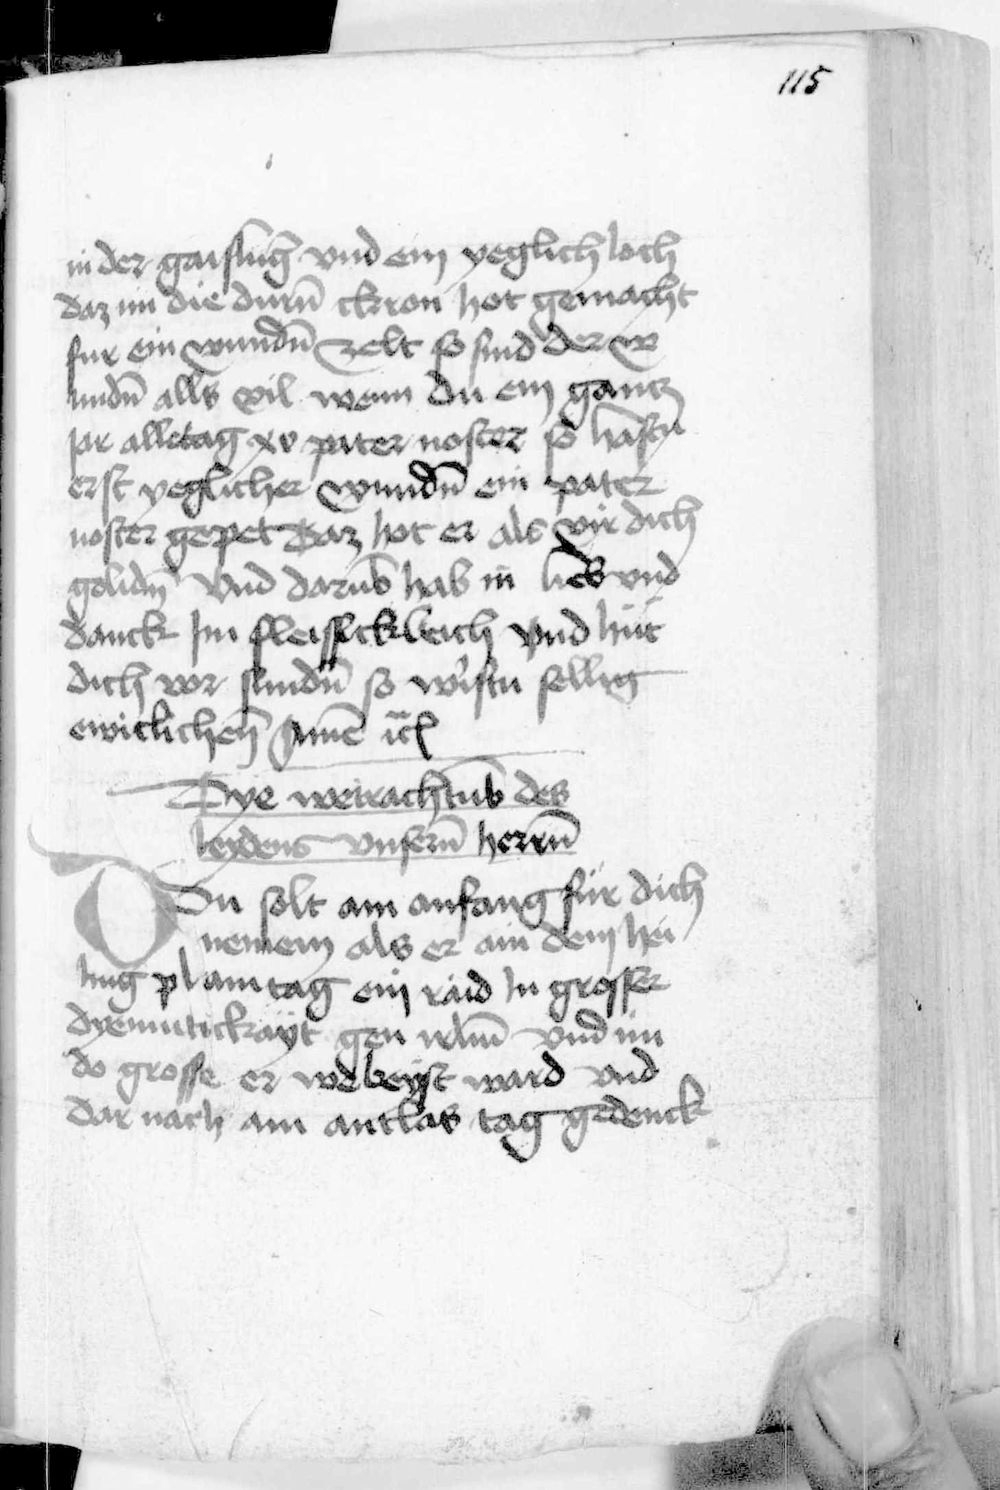 115
in der gaislung vnd ein yeglich loch
daz im die durñ ckron hot gemacht
fur ein wundñ zelt so sind der w
undñ alls vil wenn du ein gantz
jar alletag xv pater noster so hastu
erst yeglicher wundñ ein pater
noster gepet Daz hot er als vir dich
gelidñ Vnd darub̄ hab in lieb vnd
danck im fleissicklich vnd hüt
dich vor sundñ so wirstu sellig
ewiclichenn Amē
Dye wetrachtūb des
leydens vnserñ herrñ
Du solt am anfang für dich
nemem als er ain dem hei
ling plamtag ein raid in grosser
dyemutickayt gen vnd im
do grosse er webeyst ward vnd
dar nach am antlas tag gedenck